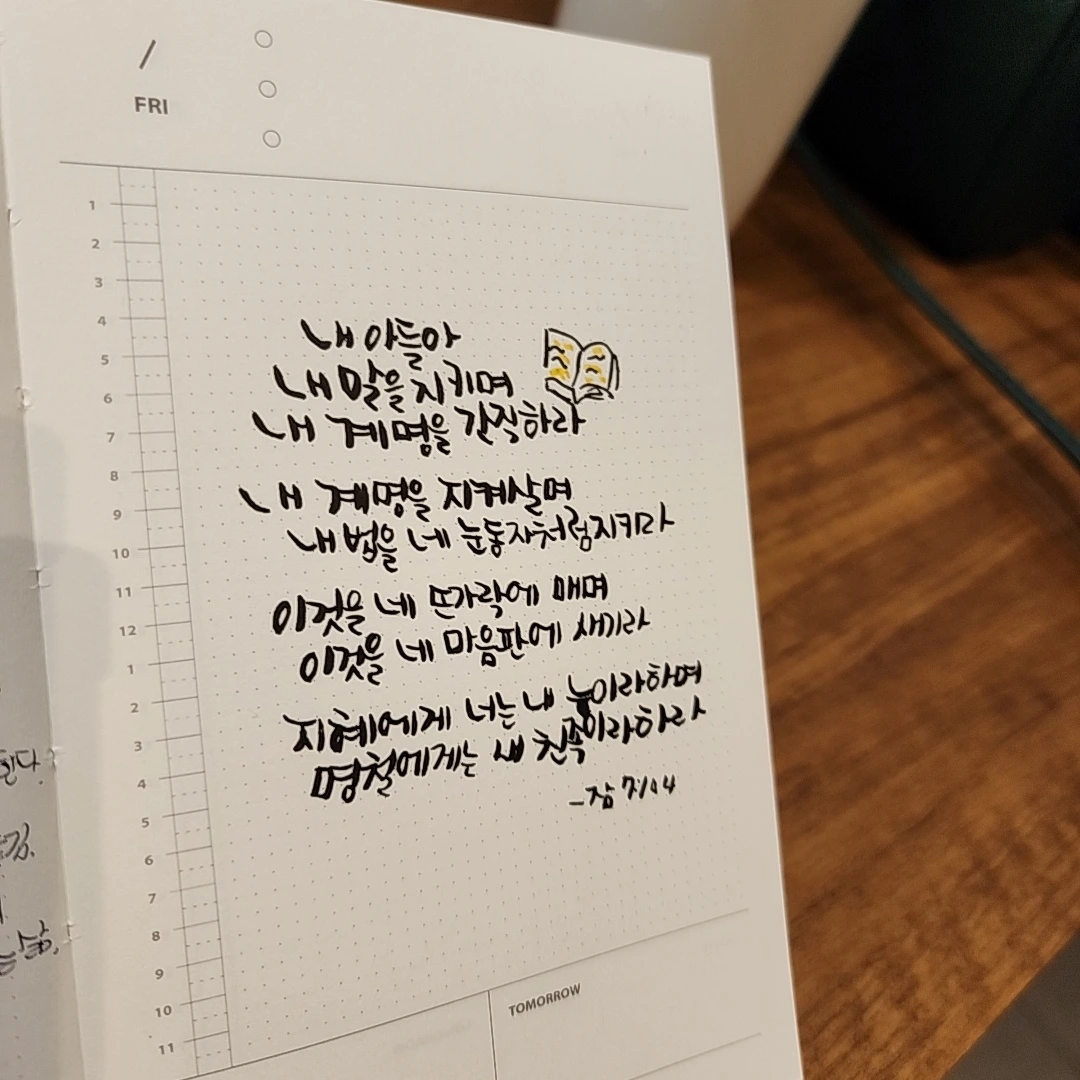 /
FRI
1
2
3
4
5
6
7
8
9
10
11
12
1
2
3
4
5
6
7
8
9
10
11
내 아들아
내 말을 지키며
내 계명을 간직하라
내 계명을 지켜살며
내 법을 네 눈동자처럼지키라
이것을 네 손가락에 매며
이것을 네 마음판에 새기라
지혜에게 너는 내 누이라하며
명철에게는 내 친족이라하라
-잠 7:1~4
TOMORROW
한다.